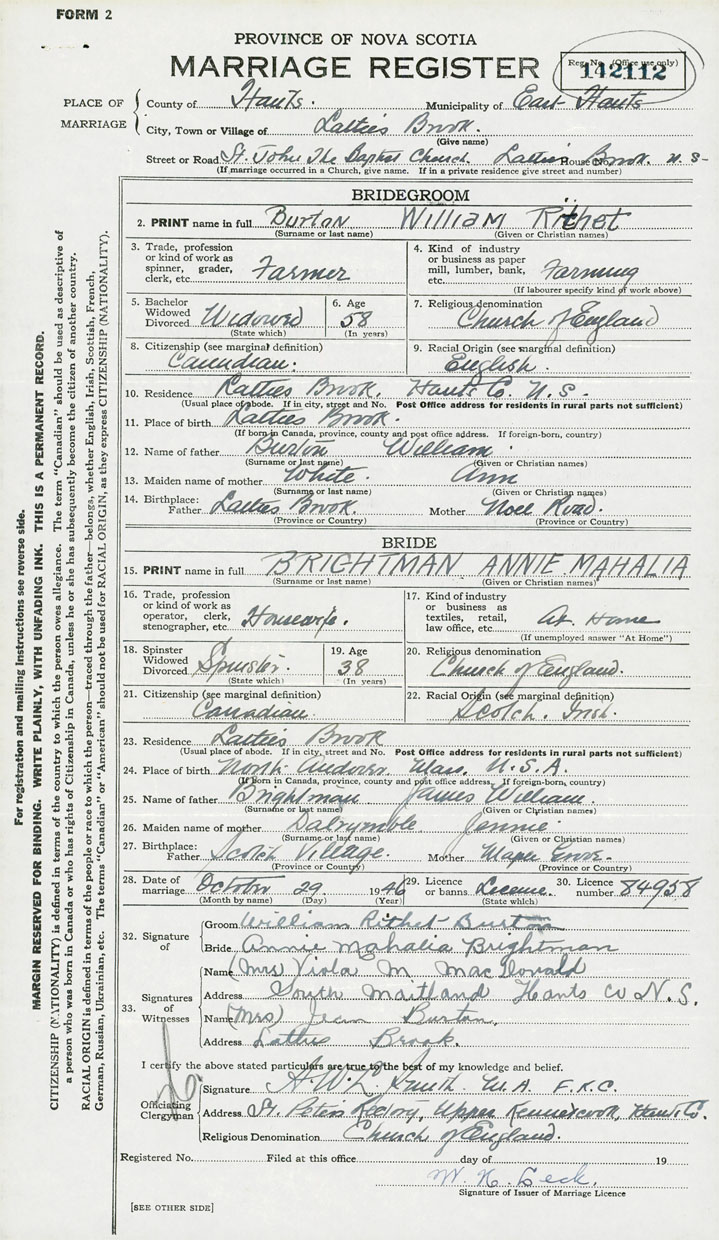 FORM 2
PROVINCE OF NOVA SCOTIA
MARRIAGE REGISTER
Reg. No. (Office use only)
142112
PLACE OF MARRIAGE
County of Hants. Municipality of East Hants
City, Town or Village of Latties Brook.
(Give name)
Street or Road St. John The Baptist Church. Latties House No. Brook. N. S-
(If marriage occurred in a Church, give name. If in a private residence give street and number)
BRIDEGROOM
2. PRINT name in full Burton William Rithet
(Surname or last name) (Given or Christian names)
3. Trade, profession or kind of work as spinner, grader, clerk, etc. Farmer
4. Kind of industry or business as paper mill, lumber, bank, etc. Farming
(If labourer specify kind of work above)
5. Bachelor Widowed Divorced Widowed
(State which)
6. Age 58
(In years)
7. Religious denomination
Church of England
8. Citizenship (see marginal definition)
Canadian.
9. Racial Origin (see marginal definition)
English.
10. Residence Latties Brook. Hants Co. N. S.
(Usual place of abode. If in city, street and No. Post Office address for residents in rural parts not sufficient)
11. Place of birth Latties Brook.
(If born in Canada, province, county and post office address. If foreign-born, country)
12. Name of father Burton William.
(Surname or last name) (Given or Christian names)
13. Maiden name of mother White. Ann
(Surname or last name) (Given or Christian names)
14. Birthplace: Father Latties Brook. Mother Noel Road.
(Province or Country) (Province or Country)
BRIDE
15. PRINT name in full BRIGHTMAN ANNIE MAHALIA
(Surname or last name) (Given or Christian names)
16. Trade, profession or kind of work as operator, clerk, stenographer, etc. Housewife.
17. Kind of industry or business as textiles, retail, law office, etc. At Home
(If unemployed answer "At Home")
18. Spinster Widowed Divorced Spinster.
(State which)
19. Age 38
(In years)
20. Religious denomination
Church of England.
21. Citizenship (see marginal definition)
Canadian.
22. Racial Origin (see marginal definition)
Scotch. Irish.
23. Residence Latties Brook
(Usual place of abode. If in city, street and No. Post Office address for residents in rural parts not sufficient)
24. Place of birth North Andover Mass. U. S. A.
(If born in Canada, province, county and post office address. If foreign-born, country)
25. Name of father Brightman James William.
(Surname or last name) (Given or Christian names)
26. Maiden name of mother Dalrymple Jennie.
(Surname or last name) (Given or Christian names)
27. Birthplace: Father Scotch Village. Mother Maple Grove.
(Province or Country) (Province or Country)
28. Date of marriage October 29 1946
(Month by name) (Day) (Year)
29. Licence or banns Licence.
(State which)
30. Licence number 84958
32. Signature of
Groom William Rithet Burton
Bride Annie Mahalia Brightman
33. Signatures of Witnesses
Name (Mrs) Viola M MacDonald
Address South Maitland Hants Co N. S.
Name (Mrs) Jean Burton.
Address Latties Brook.
I certify the above stated particulars are true to the best of my knowledge and belief.
Officiating Clergyman
Signature A. W. L. Smith. M. A. F. K. C.
Address St. Peters Rectory, Upper Kennetcook, Hants Co.
Religious Denomination Church of England.
Registered No. Filed at this office day of 19
Signature of Issuer of Marriage Licence
[SEE OTHER SIDE]
For registration and mailing instructions see reverse side.
MARGIN RESERVED FOR BINDING. WRITE PLAINLY, WITH UNFADING INK. THIS IS A PERMANENT RECORD.
CITIZENSHIP (NATIONALITY) is defined in terms of the country to which the person owes allegiance. The term "Canadian" should be used as descriptive of
a person who was born in Canada or who has rights of Citizenship in Canada, unless he or she has subsequently become the citizen of another country.
RACIAL ORIGIN is defined in terms of the people or race to which the person—traced through the father—belongs, whether English, Irish, Scottish, French,
German, Russian, Ukrainian, etc. The terms "Canadian" or "American" should not be used for RACIAL ORIGIN, as they express CITIZENSHIP (NATIONALITY).